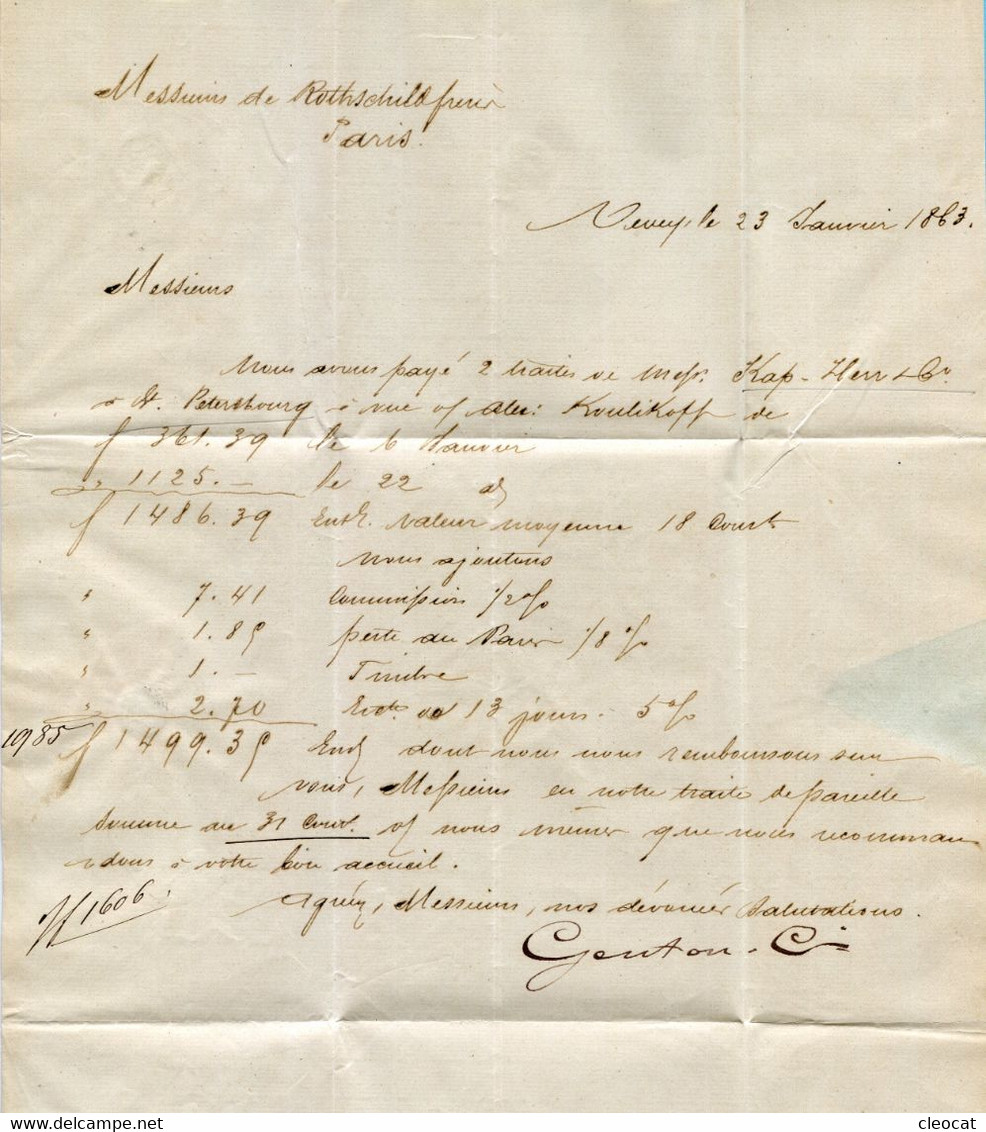 Messieurs de Rothschild frères
Paris.
Vevey, le 23 Janvier 1863.
Messieurs
Nous avons payé 2 traites de Messrs. Kap-Herr & Co.
à St. Petersbourg à vue o/ Alex: Koulikoff de
f 361.39 le 6 Janvier
" 1125.— le 22 d/
f 1486.39 Ensb. valeur moyenne 18 Court
nous ajoutons
" 7.41 Commission 1/2 %
" 1.85 perte au Paris 1/8 %
" 1.— Timbre
" 2.70 Int. de 13 jours. 5 %
1985 f 1499.35 Ensb dont nous nous remboursons sur
vous, Messieurs en notre traite de pareille
somme au 31 Court. o/ nous mêmes que nous recomman
dons à votre bon accueil.
1606. Agréez, Messieurs, nos dévouées Salutations.
Genton & Cie
cleocat